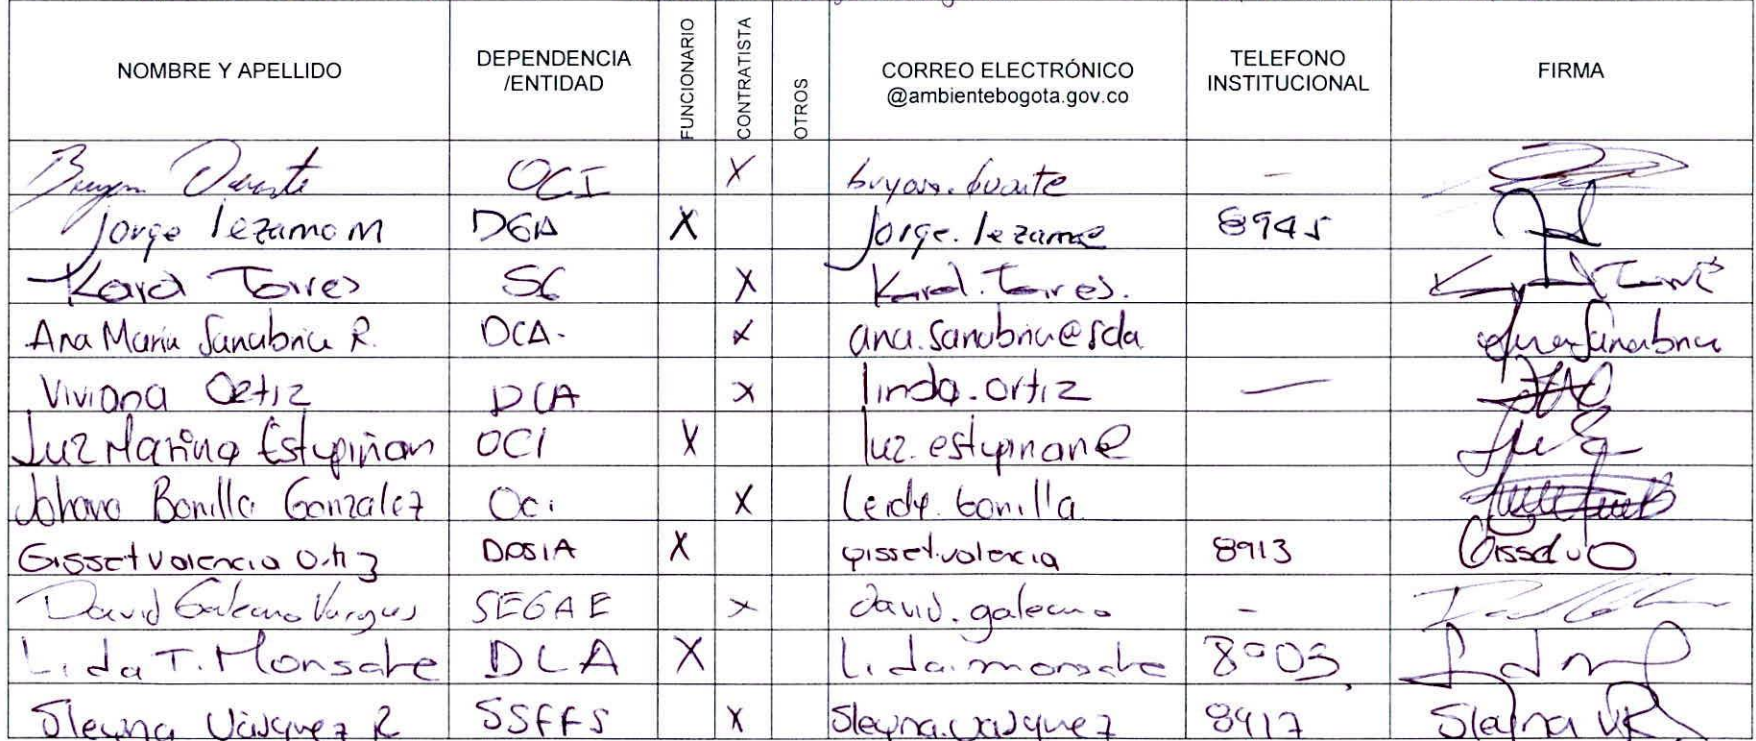 NOMBRE Y APELLIDO DEPENDENCIA /ENTIDAD FUNCIONARIO CONTRATISTA OTROS CORREO ELECTRÓNICO @ambientebogota.gov.co TELEFONO INSTITUCIONAL FIRMA
Duarte OCI X duarte -
Jorge lezama M DGA X jorge.lezama 8945
Karol Torres SC X Karol.Torres.
Ana Maria Sanabria R. DCA- x ana.sanabria@sda Ana Sanabria
Viviana Ortiz DCA x linda.ortiz —
Luz Marina Estupiñan OCI X luz.estupinan@
Johana Bonilla Gonzalez Oci X Leidy.bonilla
Gisset Valencia Ortiz DPSIA X gisset.valencia 8913 Gisset VO
David Galeano Vargas SEGAE x david.galeano -
Lida T. Monsalve DLA X Lida.monsalve
Sleyna Vásquez R SSFFS X Sleyna.vasquez 8917 Sleyna VR